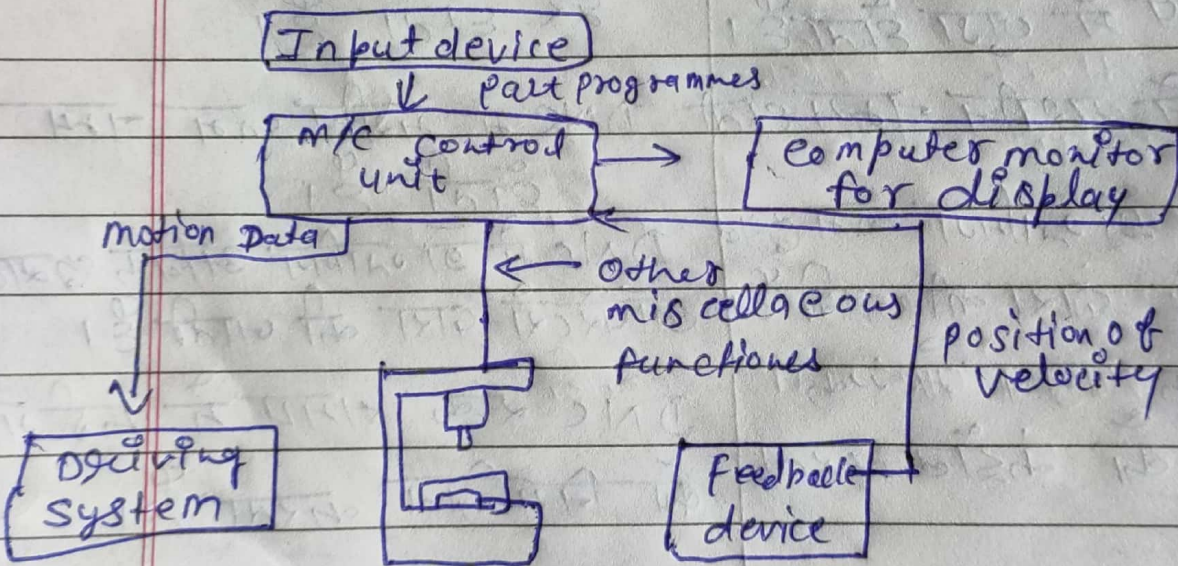 Input device
Part programmes
M/C Control
unit
Computer monitor
for display
Motion Data
Other
miscellaeous
functiones
position of
velocity
Driving
system
Feedback
device